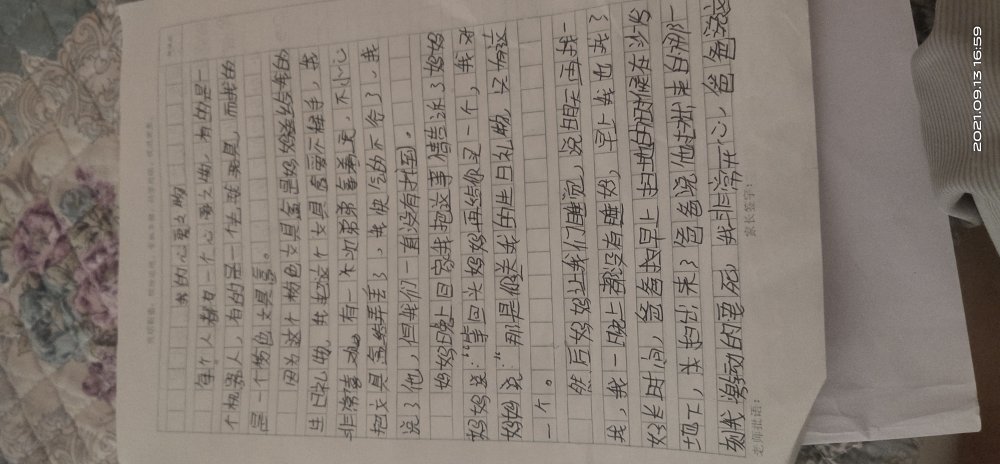 我的心爱之物
每个人都有一个心爱之物，有的是一
个机器人，有的是一个毛绒玩具，而我的
是一个粉色文具盒。
因为这个粉色文具盒是妈妈送给我的
生日礼物，我把这个文具盒爱不释手，我
非常喜欢。有一次弟弟拿着它，不小心
把文具盒给弄丢了，我快气的不行了，我
说了他，但我们一直没有找到。
妈妈晚上回家我把这事情告诉了妈妈
妈妈说："等回头妈妈再给你买一个，我对
妈妈说："那是你送我的生日礼物，只有这
一个。
然后妈妈让我们睡觉，说明天再找一
找，我一晚上都没有睡好，早上我也找了
好长时间，爸爸找早上扫地的时候在沙发
地下，头扫出来了爸爸说他扫出来的那一
刻我激动的要死，我非常开心，爸爸没
老师批语：
家长签字：
2021.09.13 16:59